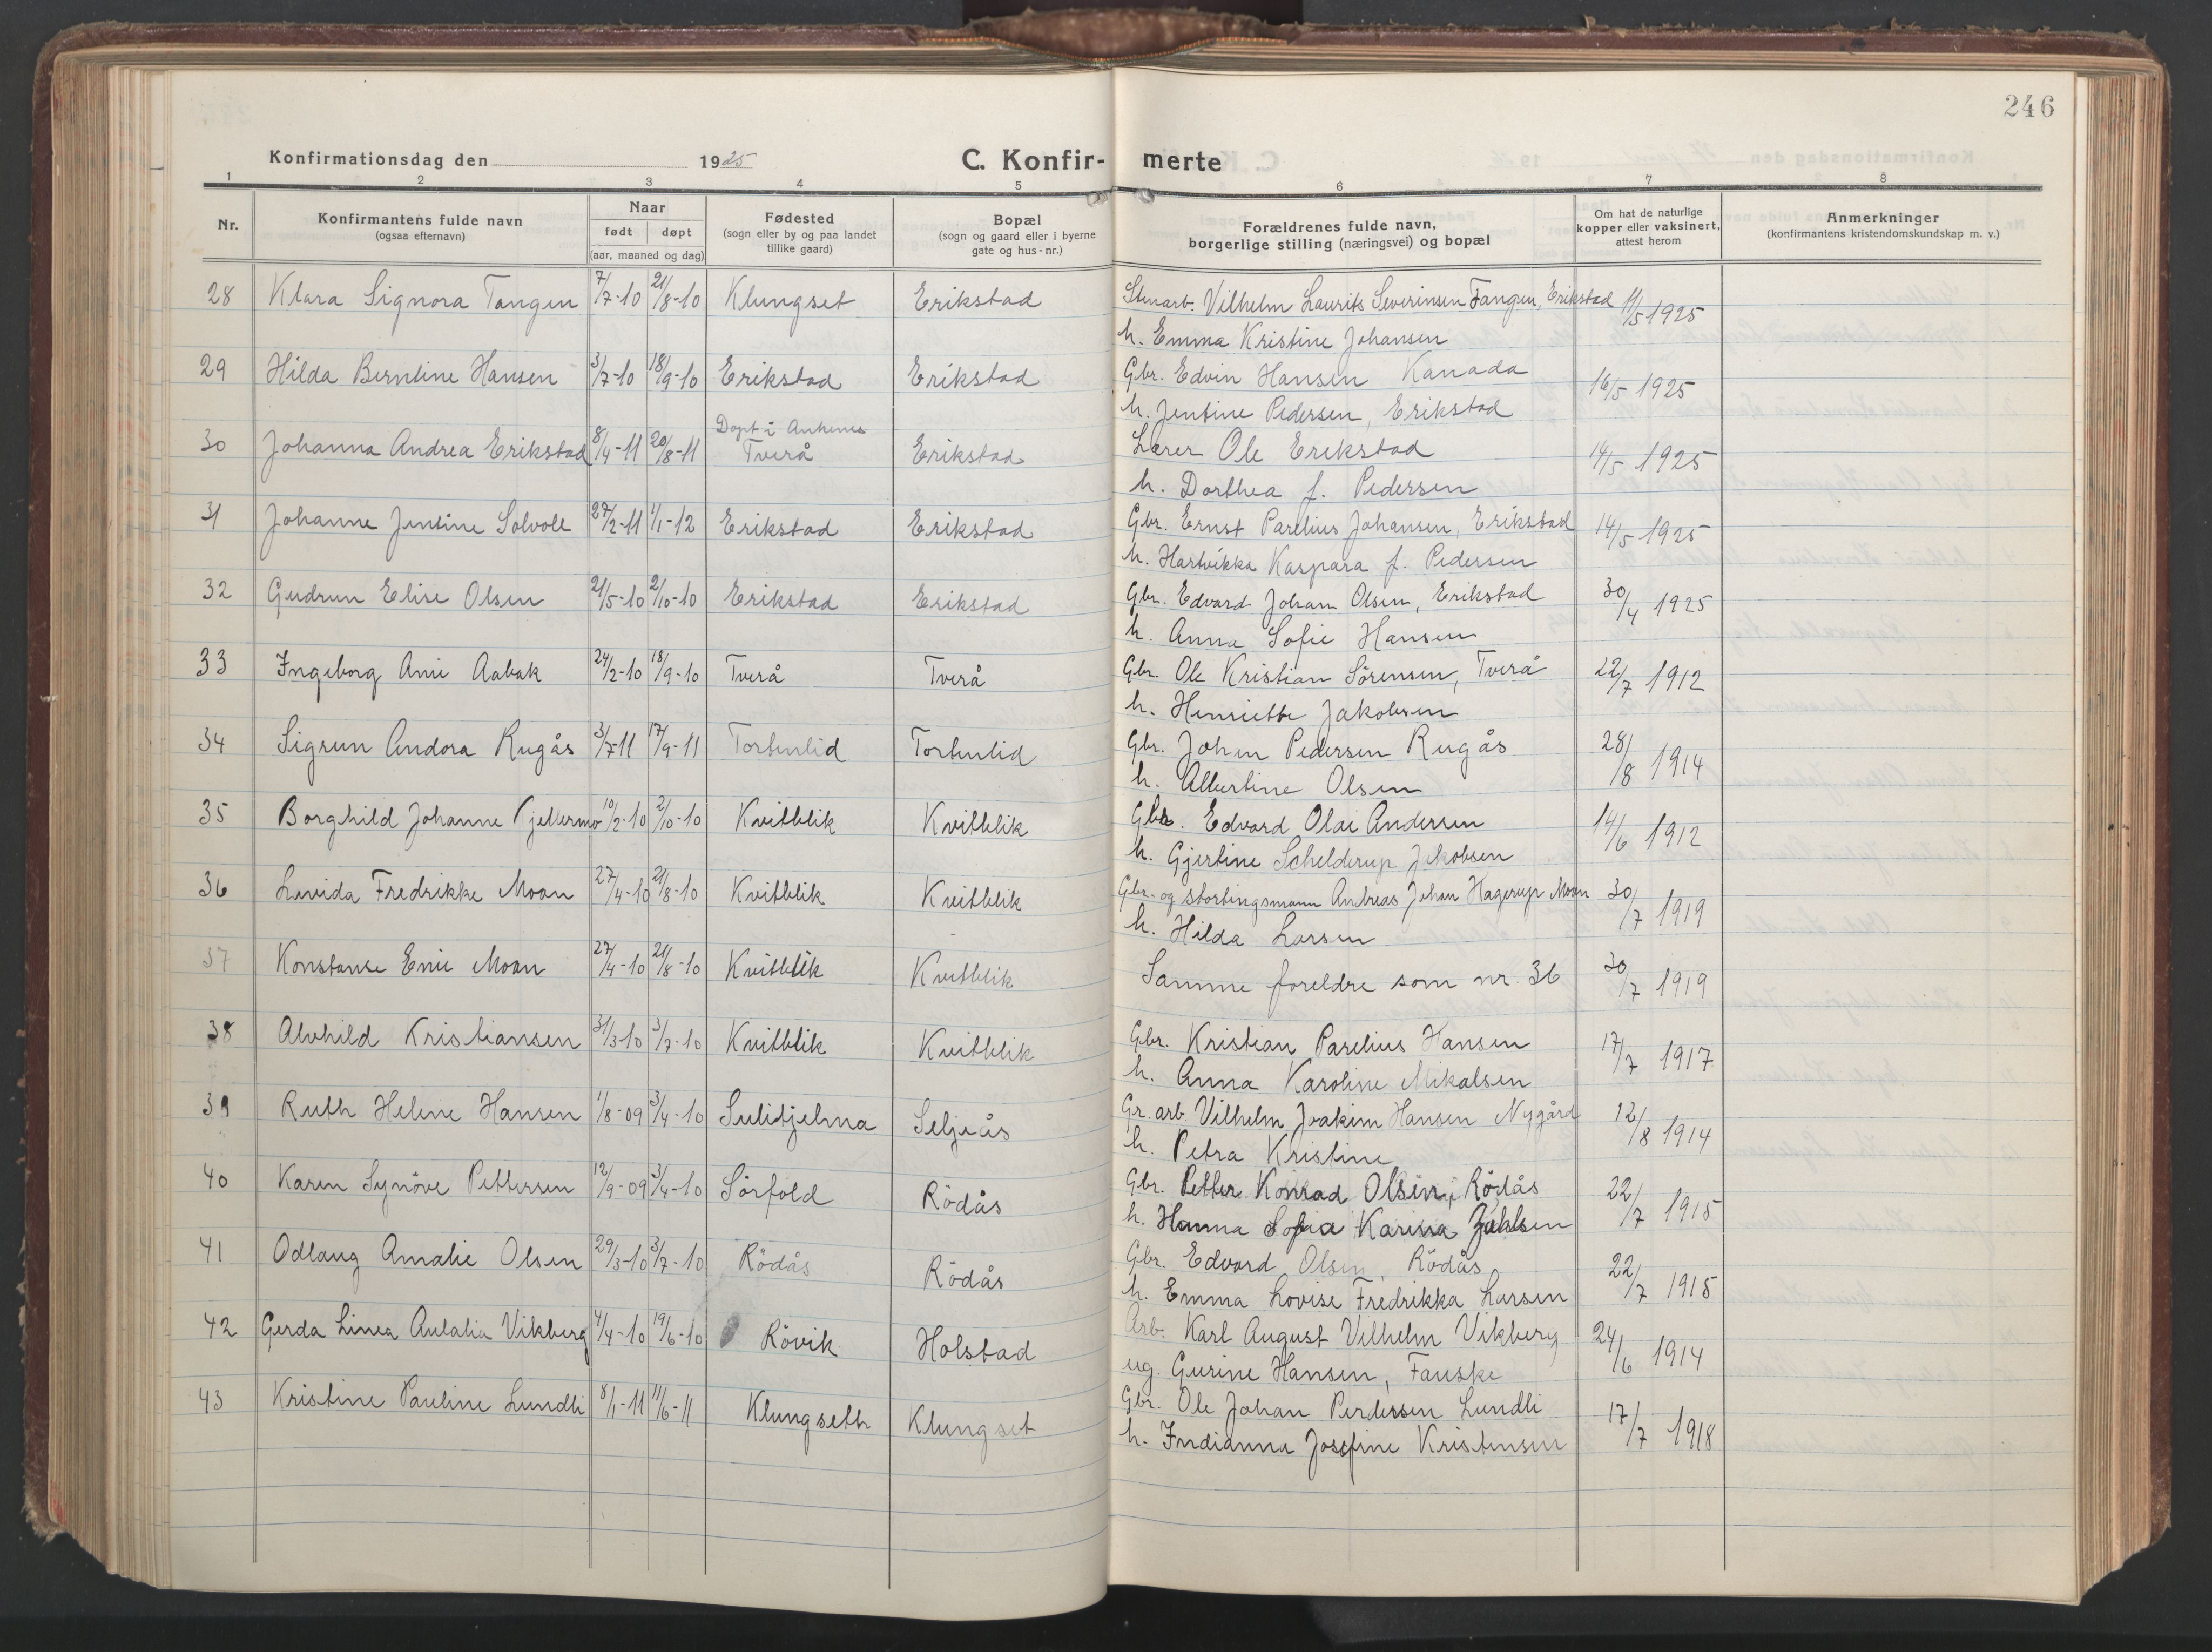 246
Konfirmationsdag den 1925 C. Konfirmerte
1 2 3 4 5 6 7 8
Nr. Konfirmantens fulde navn (ogsaa efternavn) Naar født døpt (aar, maaned og dag) Fødested (sogn eller by og paa landet tillike gaard) Bopæl (sogn og gaard eller i byerne gate og hus-nr.) Forældrenes fulde navn, borgerlige stilling (næringsvei) og bopæl Om hat de naturlige kopper eller vaksinert, attest herom Anmerkninger (konfirmantens kristendomskundskap m. v.)
28 Klara Signora Tangen 7/7-10 21/8-10 Klungset Erikstad Stenarb. Vilhelm Laurits Severinsen Tangen, Erikstad 11/5 1925
h. Emma Kristine Johansen
29 Hilda Berntine Hansen 3/7-10 18/9-10 Erikstad Erikstad Gbr. Edvin Hansen Kanada 16/5 1925
h. Jentine Pedersen, Erikstad
30 Johanna Andrea Erikstad 8/4-11 20/8-11 Döpt i Ankenes Tverå Erikstad Lærer Ole Erikstad 14/5 1925
h. Dorthea f. Pedersen
31 Johanne Jentine Solvoll 27/2-11 1/1-12 Erikstad Erikstad Gbr. Ernst Parelius Johansen, Erikstad 14/5 1925
h. Hartvikka Kaspara f. Pedersen
32 Gudrun Elise Olsen 21/5-10 2/10-10 Erikstad Erikstad Gbr. Edvard Johan Olsen, Erikstad 30/4 1925
h. Anna Sofie Hansen
33 Ingeborg Ani Aabak 24/2-10 18/9-10 Tverå Tverå Gbr. Ole Kristian Sörensen, Tverå 22/7 1912
h. Henriette Jakobsen
34 Sigrun Andora Rugås 3/7-11 17/9-11 Tortenlid Tortenlid Gbr. Johan Pedersen Rugås 28/8 1914
h. Albertine Olsen
35 Borghild Johanne Kjellermo 10/2-10 2/10-10 Kvitblik Kvitblik Gbr. Edvard Olai Andersen 14/6 1912
h. Gjertine Schelderup Jakobsen
36 Luvida Fredrikke Moan 27/4-10 21/8-10 Kvitblik Kvitblik Gbr. og stortingsmann Andreas Johan Hagerup Moan 30/7 1919
h. Hilda Larsen
37 Konstanse Enie Moan 27/4-10 21/8-10 Kvitblik Kvitblik Samme foreldre som nr. 36 30/7 1919
38 Alvhild Kristiansen 31/3-10 3/7-10 Kvitblik Kvitblik Gbr. Kristian Parelius Hansen 17/7 1917
h. Anna Karoline Mikalsen
39 Ruth Helene Hansen 1/8-09 3/4-10 Sulitjelma Seljeås Gr. arb. Vilhelm Joakim Hansen Nygård 12/8 1914
h. Petra Kristine
40 Karen Synöve Pettersen 12/9-09 3/4-10 Sörfold Rödås Gbr. Petter Konrad Olsen, Rödås 22/7 1915
h. Hanna Sofia Karina
41 Odlaug Amalie Olsen 29/3-10 3/7-10 Rödås Rödås Gbr. Edvard Olsen, Rödås 22/7 1915
h. Emma Lovise Fredrikka Larsen
42 Gerda Linea Aulalia Vikberg 4/4-10 19/6-10 Rövik Holstad Arb. Karl August Vilhelm Vikberg 24/6 1914
ug. Gurine Hansen, Fauske
43 Kristine Pauline Lundli 8/1-11 11/6-11 Klungseth Klungset Gbr. Ole Johan Perdersen Lundli 17/7 1918
h. Indianna Josefine Kristensen